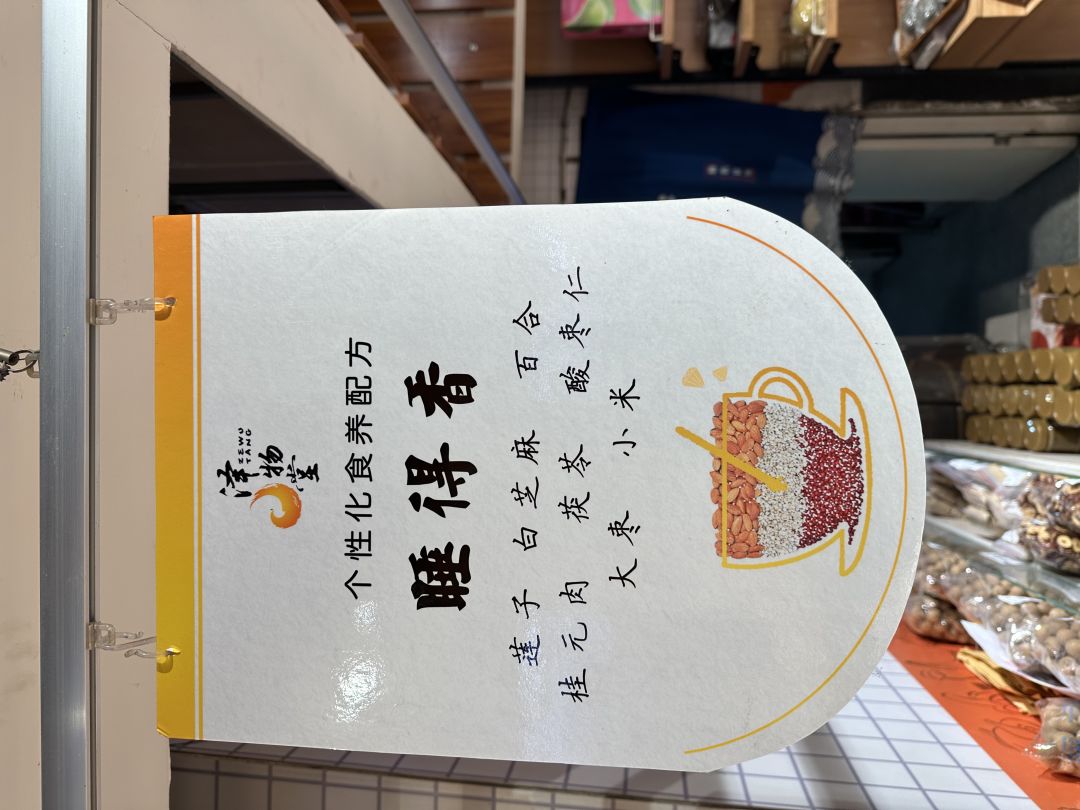 泽物堂
ZEWU
TANG
个性化食养配方
睡得香
莲子 白芝麻 百合
桂元肉 茯苓 酸枣仁
大枣 小米